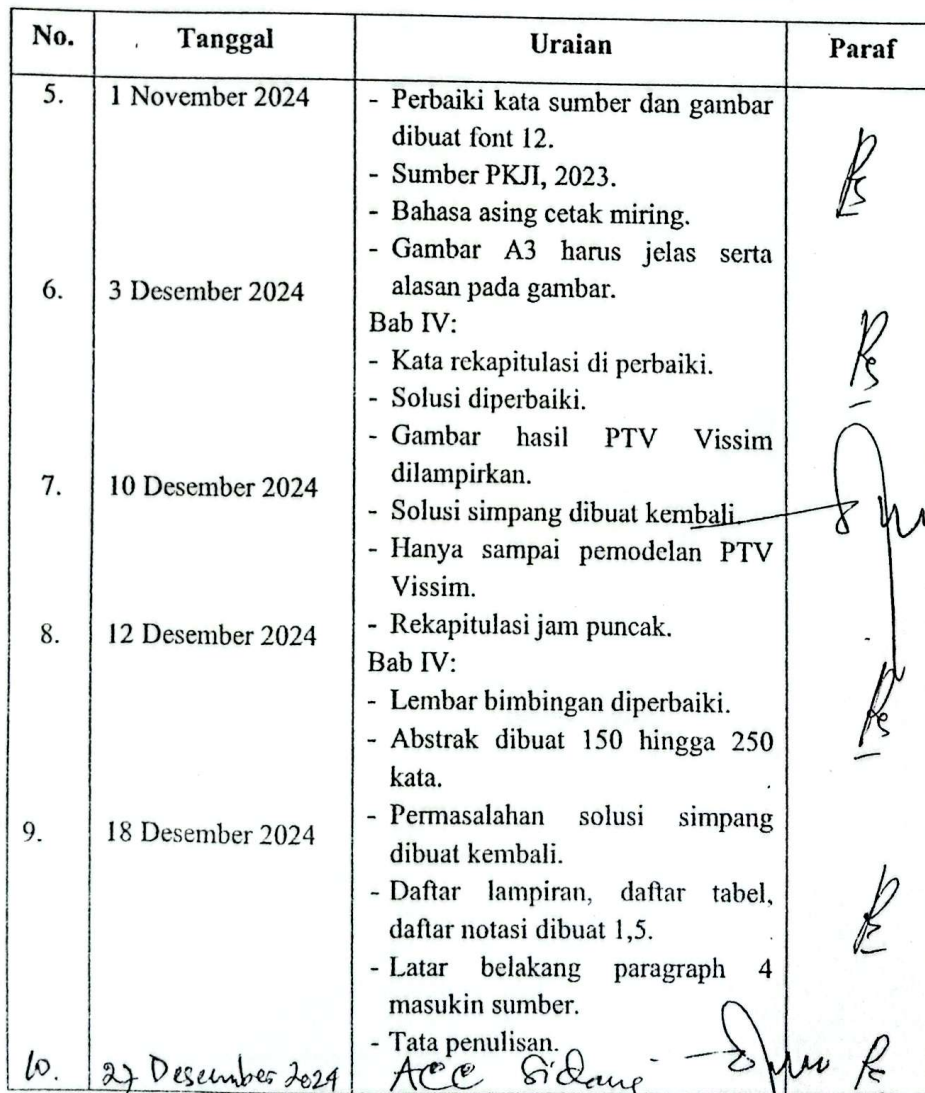 No. Tanggal Uraian Paraf
5. 1 November 2024 - Perbaiki kata sumber dan gambar
dibuat font 12.
- Sumber PKJI, 2023.
- Bahasa asing cetak miring.
- Gambar A3 harus jelas serta
6. 3 Desember 2024 alasan pada gambar.
Bab IV:
- Kata rekapitulasi di perbaiki.
- Solusi diperbaiki.
- Gambar hasil PTV Vissim
dilampirkan.
7. 10 Desember 2024
- Solusi simpang dibuat kembali.
- Hanya sampai pemodelan PTV
Vissim.
8. 12 Desember 2024 - Rekapitulasi jam puncak.
Bab IV:
- Lembar bimbingan diperbaiki.
- Abstrak dibuat 150 hingga 250
kata.
9. 18 Desember 2024 - Permasalahan solusi simpang
dibuat kembali.
- Daftar lampiran, daftar tabel,
daftar notasi dibuat 1,5.
- Latar belakang paragraph 4
masukin sumber.
- Tata penulisan.
10. 27 Desember 2024 ACC Sidang